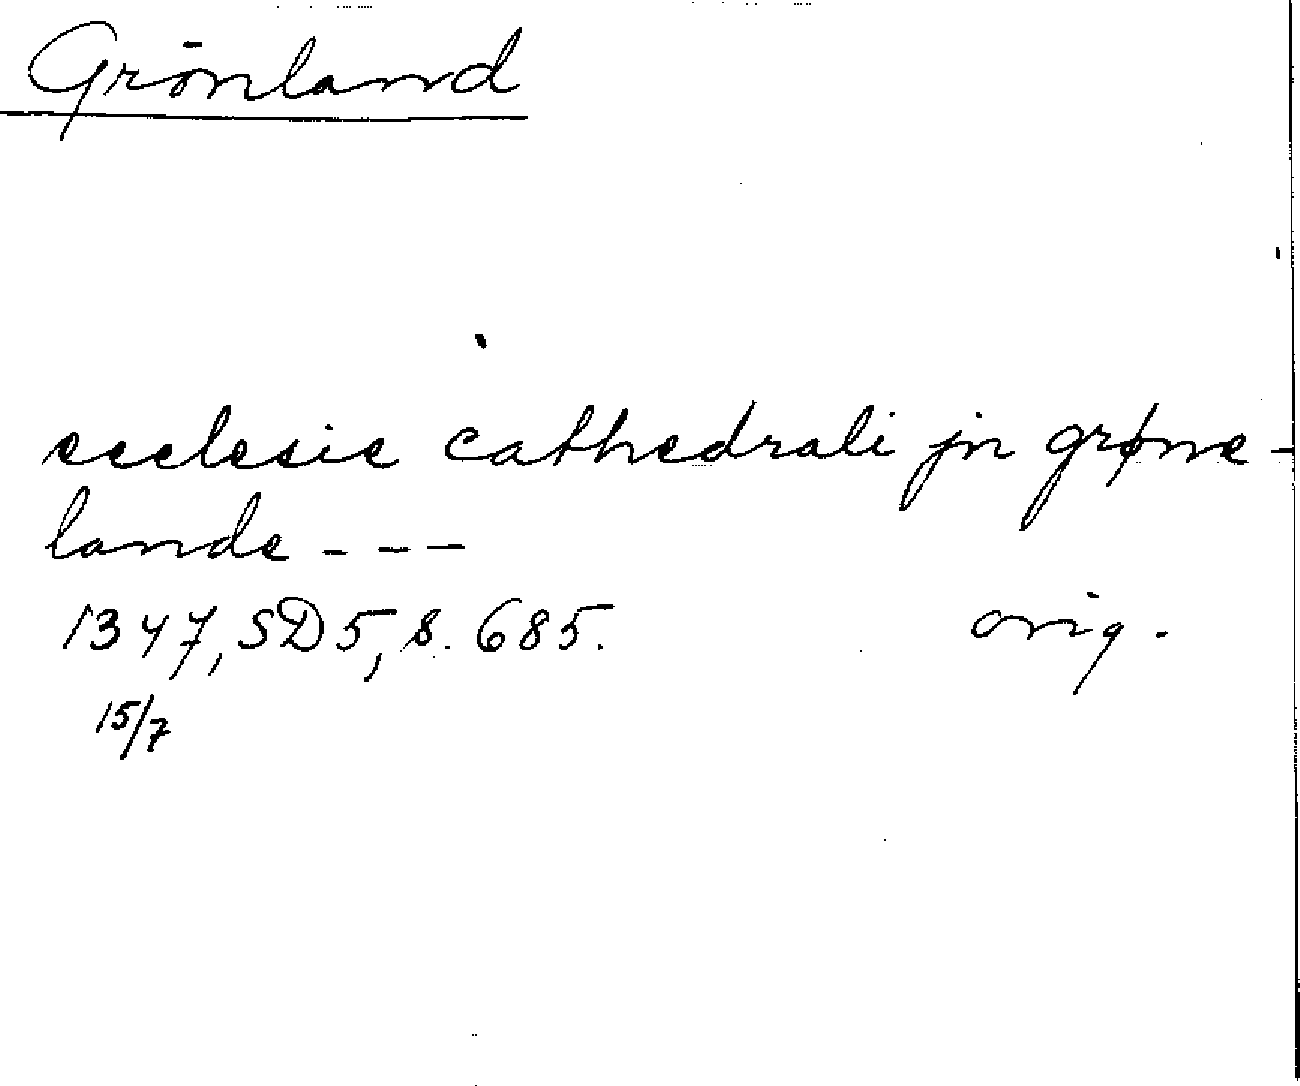 Grönland
ecclesie cathedrali jn grøne-
lande ---
1347, SD5, s. 685. orig.
15/7